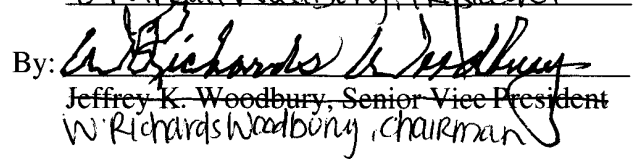 By: W Richards Woodbury
Jeffrey K. Woodbury, Senior Vice President
W. Richards Woodbury, Chairman